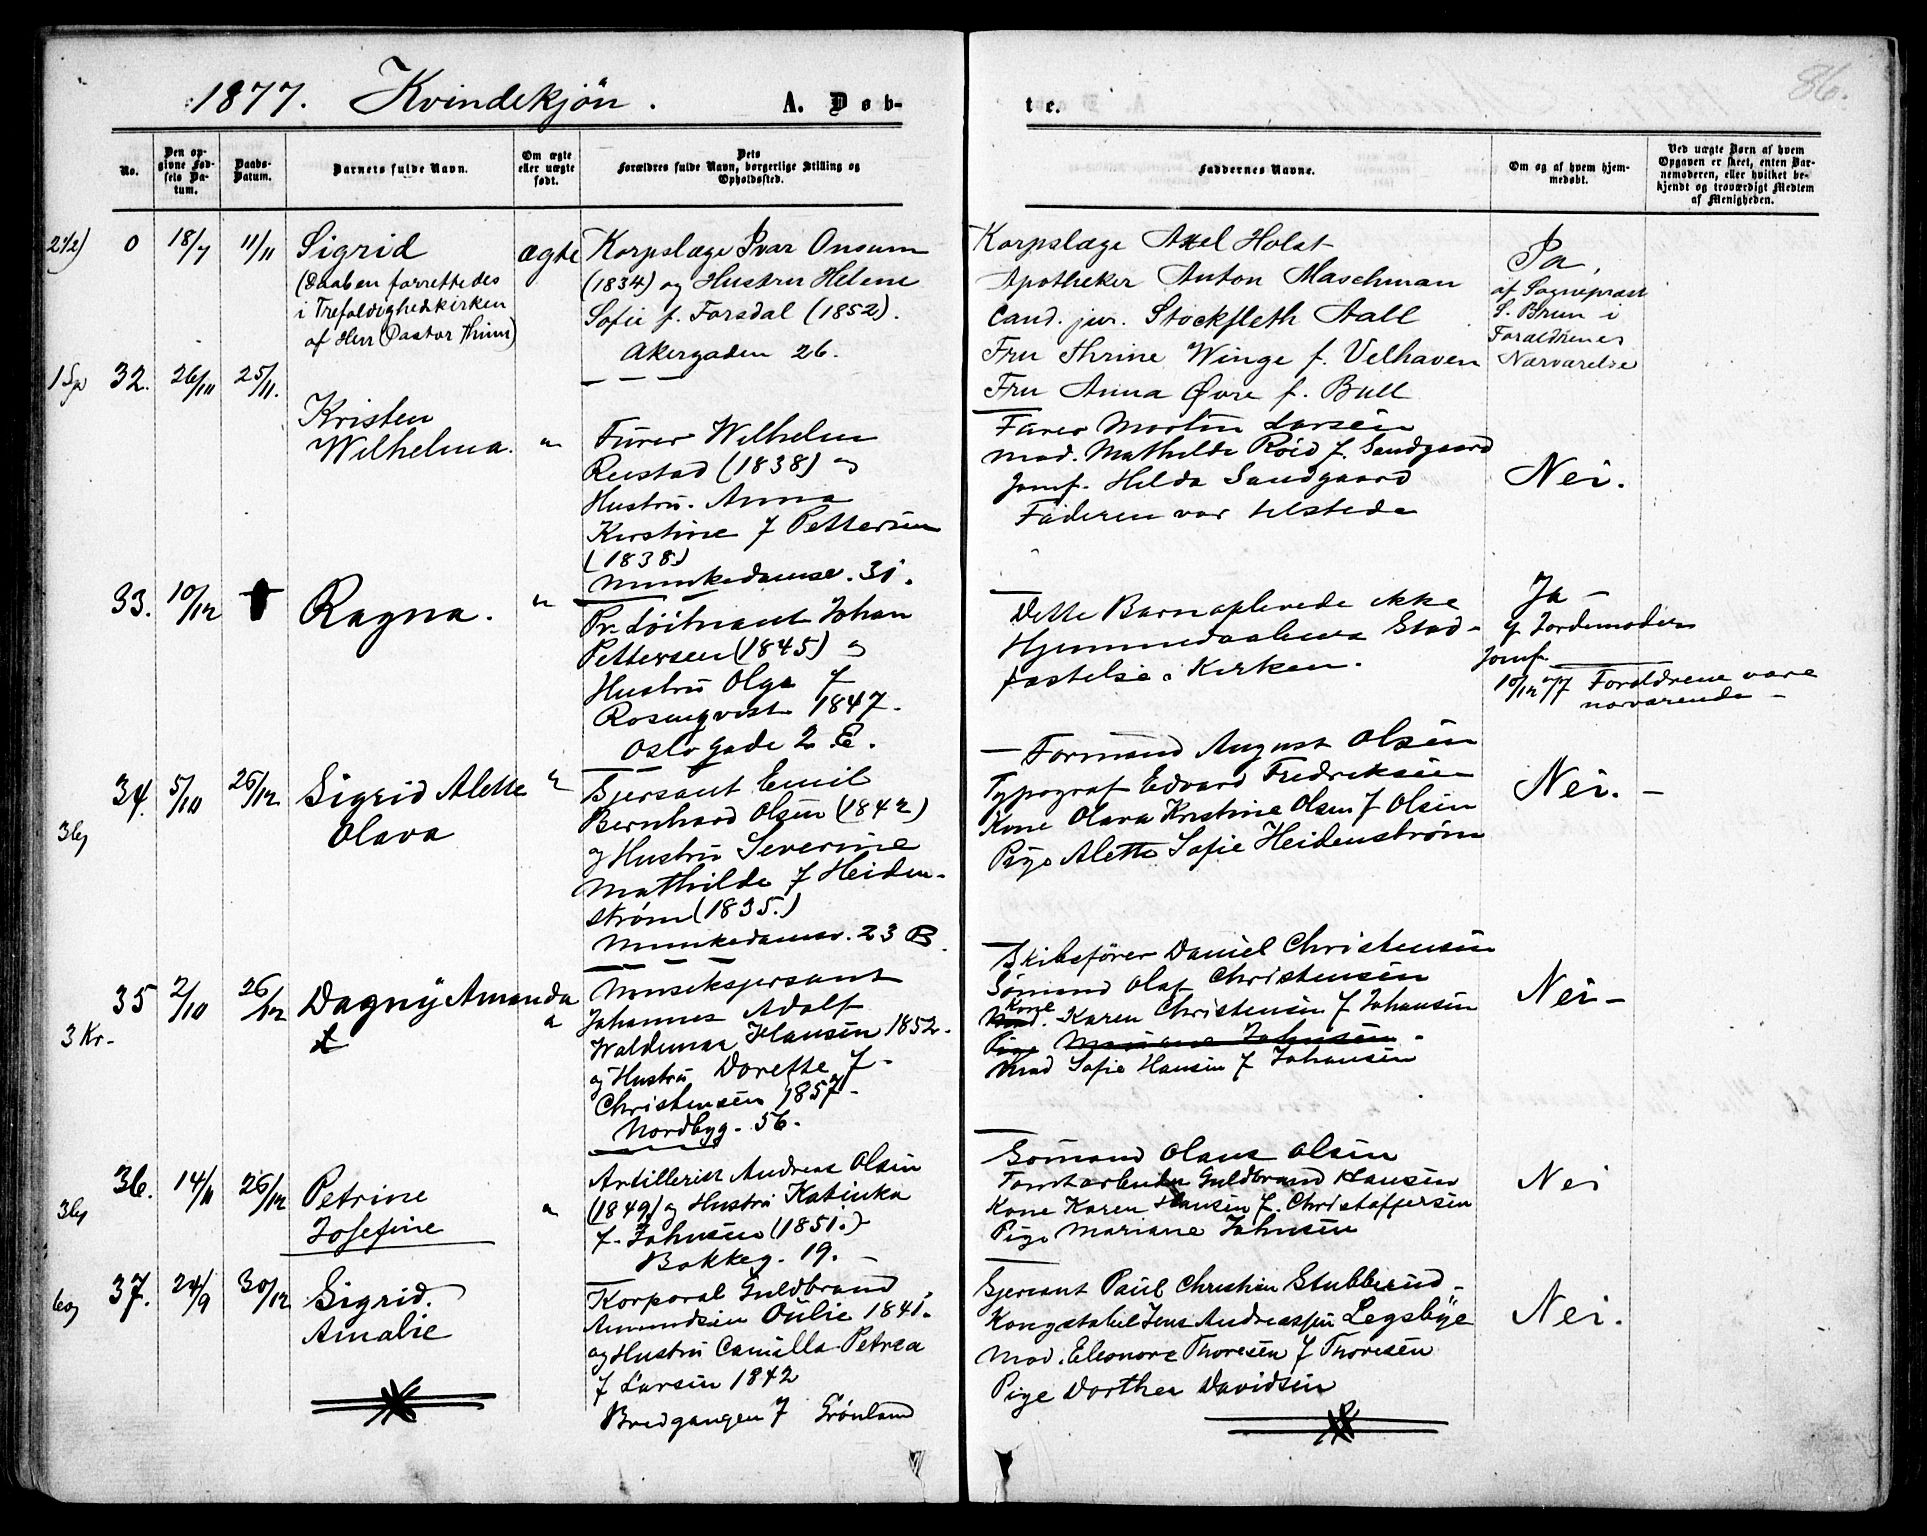 1877. Kvindekjön.
A. Døb-
te.
86.
No.
Den op-
givne Fød-
sels Da-
tum.
Daabs-
Datum.
Barnets fulde Navn.
Om ægte
eller uægte
født.
Dets
Forældres fulde Navn, borgerlige Stilling og
Opholdssted.
Faddernes Navne.
Om og af hvem hjem-
medøbt.
Ved uægte Børn af hvem
Opgaven er skeet, enten Bar-
nemoderen, eller hvilket be-
kjendt og troværdigt Medlem
af Menigheden.
0 18/7 11/11 Sigrid
(Daaben forrettedes
i Trefoldighedskirken
af Herr Pastor Thium)
ægte
Korpslæge Ivar Onsum
(1834) og Hustru Helene
Sofie f. Farsdal (1852).
Akergaden 26.
Korpslæge Axel Holst
Apotheker Anton Maschman
Cand. jur. Stockfleth Aall
Fru Thrine Winge f. Velhaven
Fru Anna Øvre f. Bull
Ja,
af Sognepræst
S. Brun i
Foraldrenes
Nærværelse
1 Sp 32. 26/10 25/11.
Kristen
Wilhelma. "
Furer Wilhelm
Reistad (1838) og
Hustru. Anna
Kirstine f Pettersen
(1838)
Munkedamsv. 31.
Furer Martin Larsen
Mad. Mathilde Röid f. Sandgaard
Jomf. Hilda Sandgaard
Faderen var tilstede
Nei.
33. 10/12 † Ragna. "
Pr. Löitnant Johan
Pettersen (1845) og
Hustru Olga f
Rosenqvist 1847.
Oslo gade 2 E.
Dette Barn oplevede ikke
Hjemmedaabens Stad-
fæstelse i Kirken.
Ja -
af Jordemoder
Jomf.
10/12 77 Foraldrene vare
nærværende -
34. 5/10 26/12 Sigrid Alette "
Olava
Sjersant Emil
Bernhard Olsen (1842)
og Hustru Severine
Mathilde f Heiden-
strøm (1835.)
Munkedamsv. 23 B.
Formand August Olsen
Typograf Edvard Fredriksen
Kone Olava Kristine Olsen f Olsen
Pige Alette Sofie Heidenstrøm
Nei. -
35 2/10 26/12 Dagny Amanda "
3 Kr-
Musiksjersant
Johannes Adolf
Waldemar Hansen 1852.
og Hustru Dorette f-
Christensen 1857-
Nordbyg. 56.
Skibsfører Daniel Christensen
Sömand Olaf Christensen
Kone
Mad. Karen Christensen f Johansen
Pige Mariane Johnsen.
Mad Sofie Hansen f Johansen
Nei -
36. 14/11 26/12 Petrine
Josefine "
Artillerist Andreas Olsen
(1849) og Hustru Katinka
f. Johnsen (1851.)
Bakkeg. 19. -
Sömand Olaus Olsen
Tomtarbeider Guldbrand Hansen
Kone Karen Hansen f. Christoffersen
Pige Mariane Johnsen
Nei
37. 24/9 30/12 Sigrid.
Amalie
Korporal Guldbrand
Amundsen Oulie 1841.
og Hustru Camilla Petrea
f Larsen 1842
Bredgangen 7 Grönland
Sjersant Paul Christian Stubberud -
Kongstabel Jens Andreassen Legsbye
Mad. Eleonore Thoresen f Thoresen
Pige Dorthea Davidsen
Nei.